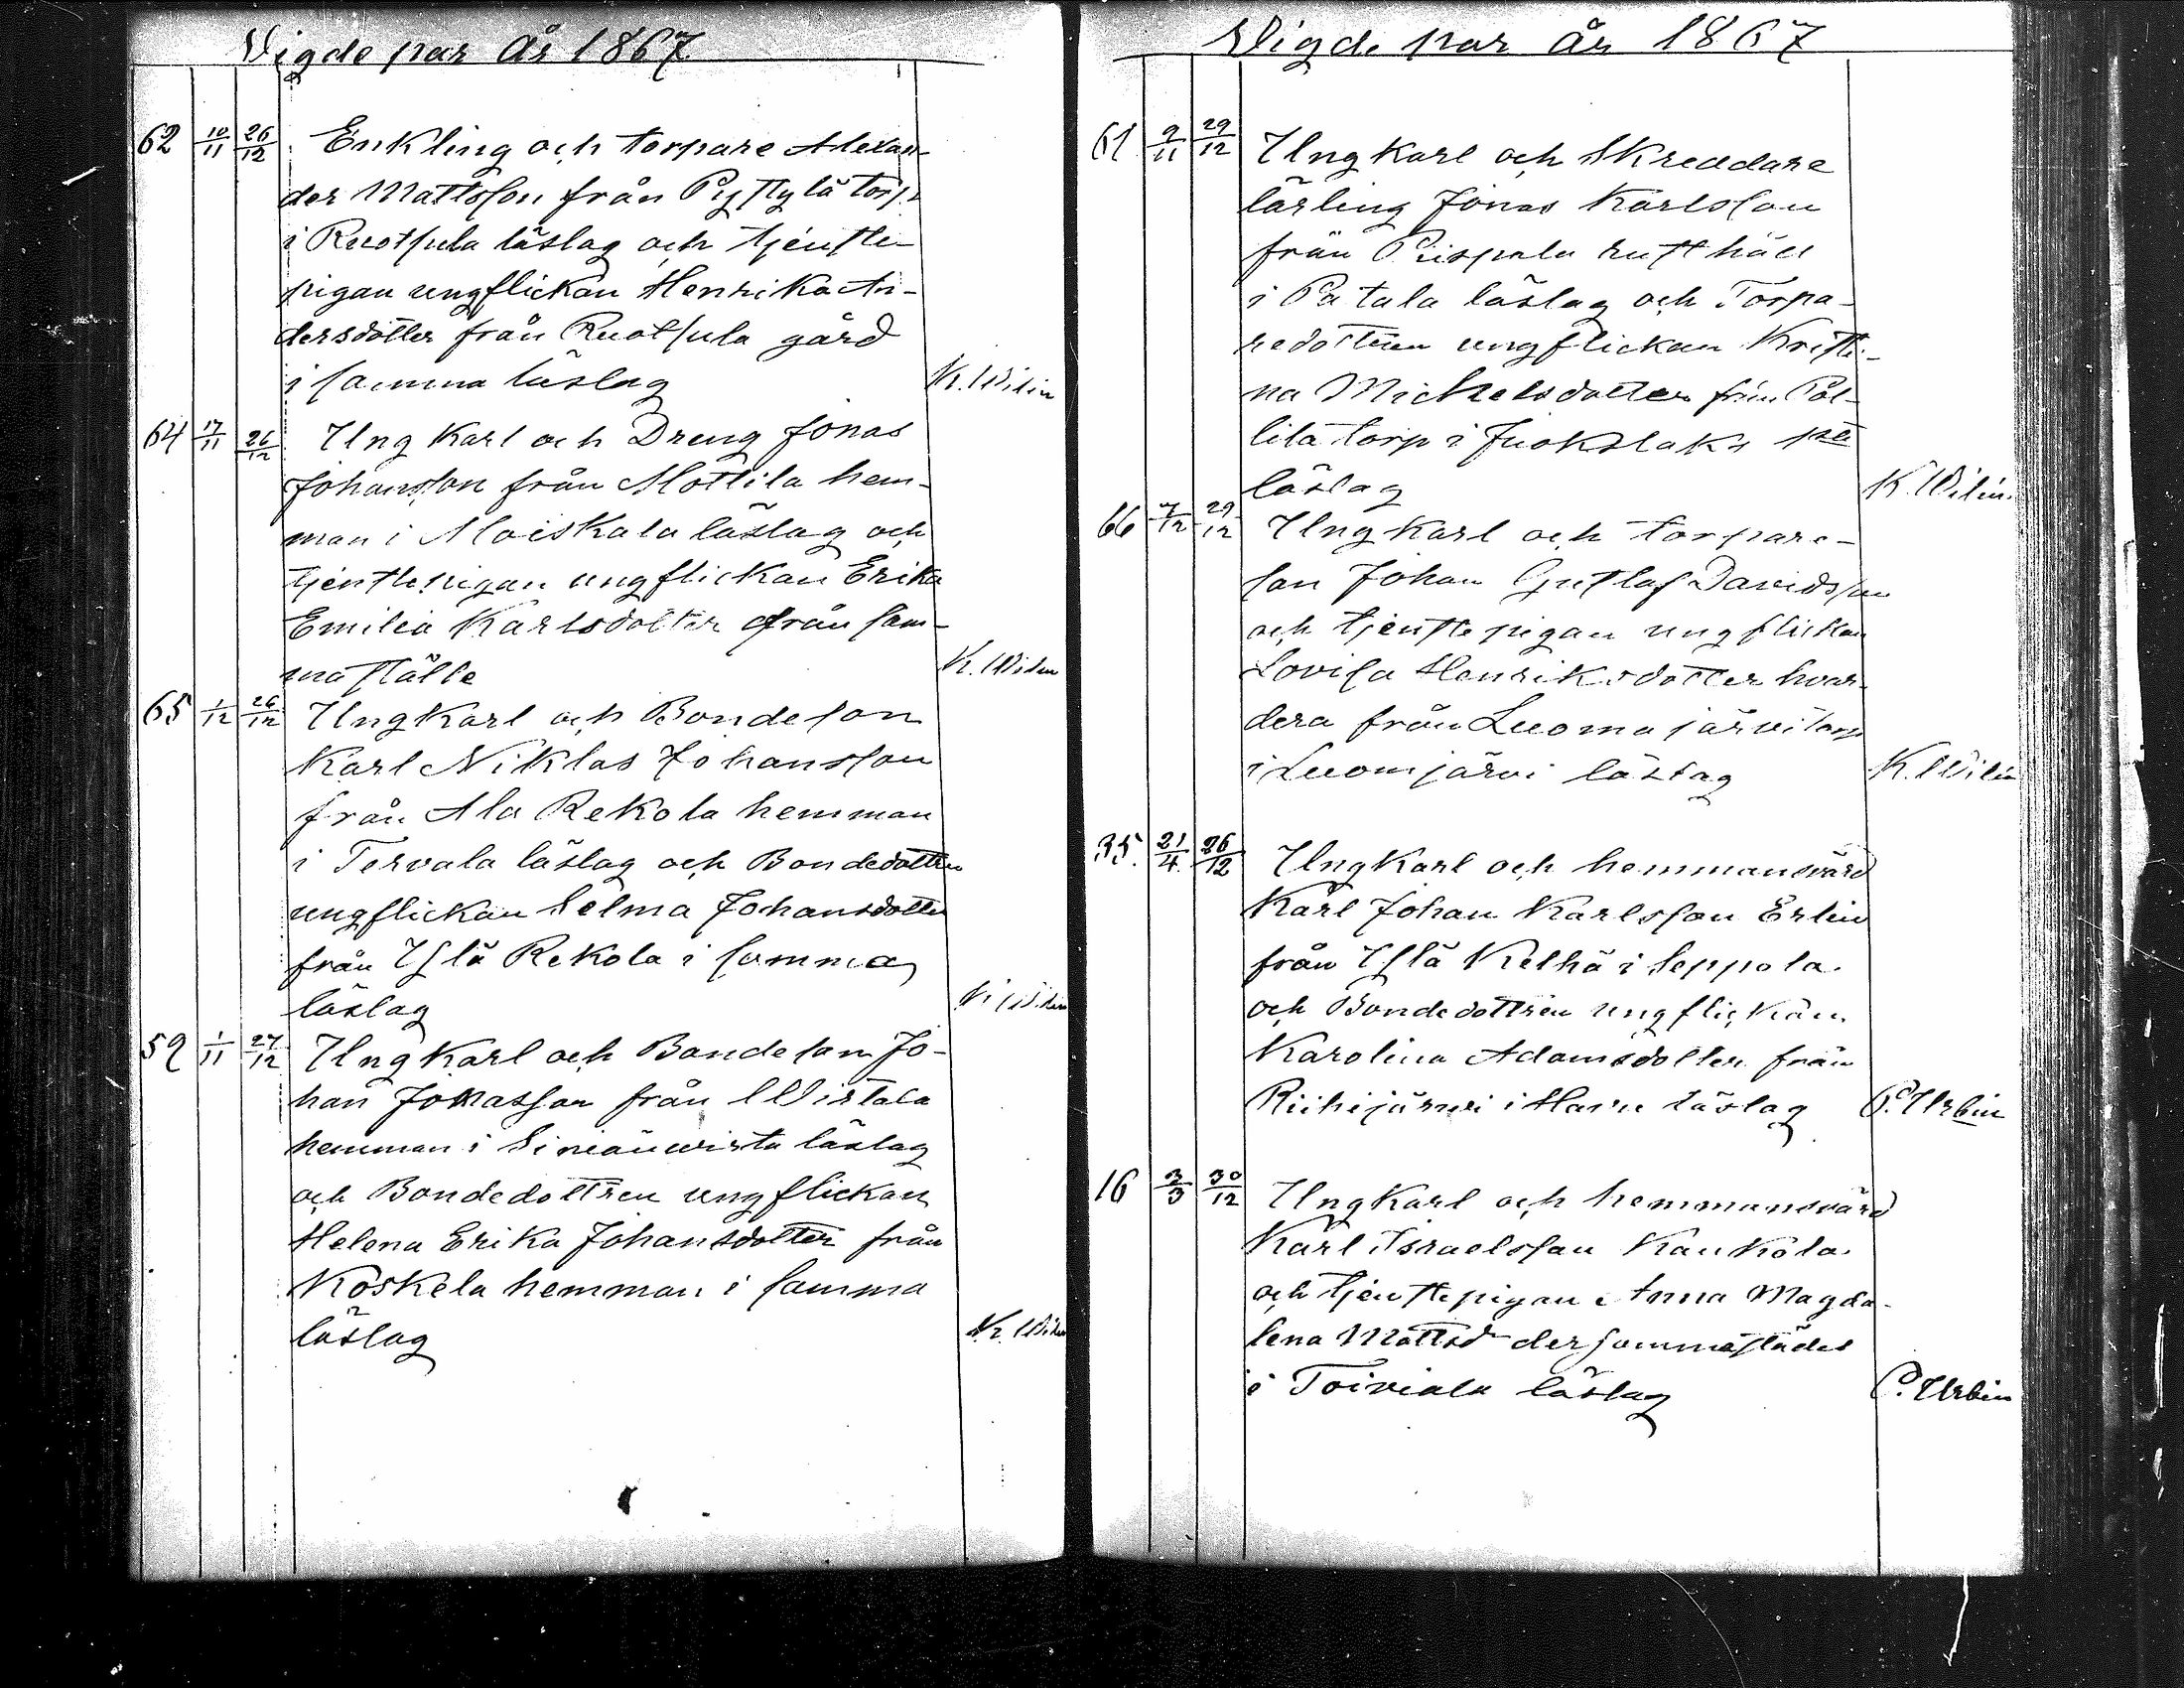 Vigde par År 1867
62 10/11 26/12 Enkling och torpare Alexan-
der Mattsson från Pystylä torp
i Ruotsula läslag och tjenste-
pigan ungflickan Henrika An-
dersdotter från Ruotsula gård
i samma läslag K. Widin
64 17/11 26/12 Ung Karl och Dreng Jonas
Johansson från Mottila hem-
man i Moiskala läslag och
tjenstepigan ungflickan Erika
Emilia Karlsdotter från sam-
ma ställe K. Widin
65 1/12 26/12 Ung Karl och Bondeson
Karl Niklas Johansson
från Ala Rekola hemman
i Tervala läslag och Bondedottren
ungflickan Selma Johansdotter
från Yllä Rekola i samma
läslag K. Widin
59 1/11 27/12 Ung Karl och Bondeson Jo-
han Jonasson från Wistala
hemman i läslag
och Bondedottren ungflickan
Helena Erika Johansdotter från
Koskela hemman i samma
läslag K. Widin
Vigde par År 1867
61 9/11 29/12 Ung Karl och Skreddare
lärling Jonas Karlsson
från Piispala rusthåll
i Patala läslag och Torpa-
redottren ungflickan Kristi-
na Michelsdotter från Päl-
lilä torp i Juokslaks 1sta
läslag K. Widin.
66 7/12 29/12 Ung Karl och torpare-
son Johan Gustaf Davidsson
och tjenstepigan ungflickan
Lovisa Henriksdotter hvar-
dera från Luomajärvi torp
i Luomjärvi läslag K. Widin
35. 21/4. 26/12 Ung Karl och hemmansvärd
Karl Johan Karlsson Erlin
från Yllä Kelhä i Seppola
och Bondedottren ungflickan
Karolina Adamsdotter från
Riihijärvi i läslag P. Urbin
16 3/3 30/12 Ung Karl och hemmansvärd
Karl Israelsson Kaukola
och tjenstepigan Anna Magda-
lena Mattsd dersammastädes
i Toiviala läslag P. Urbin